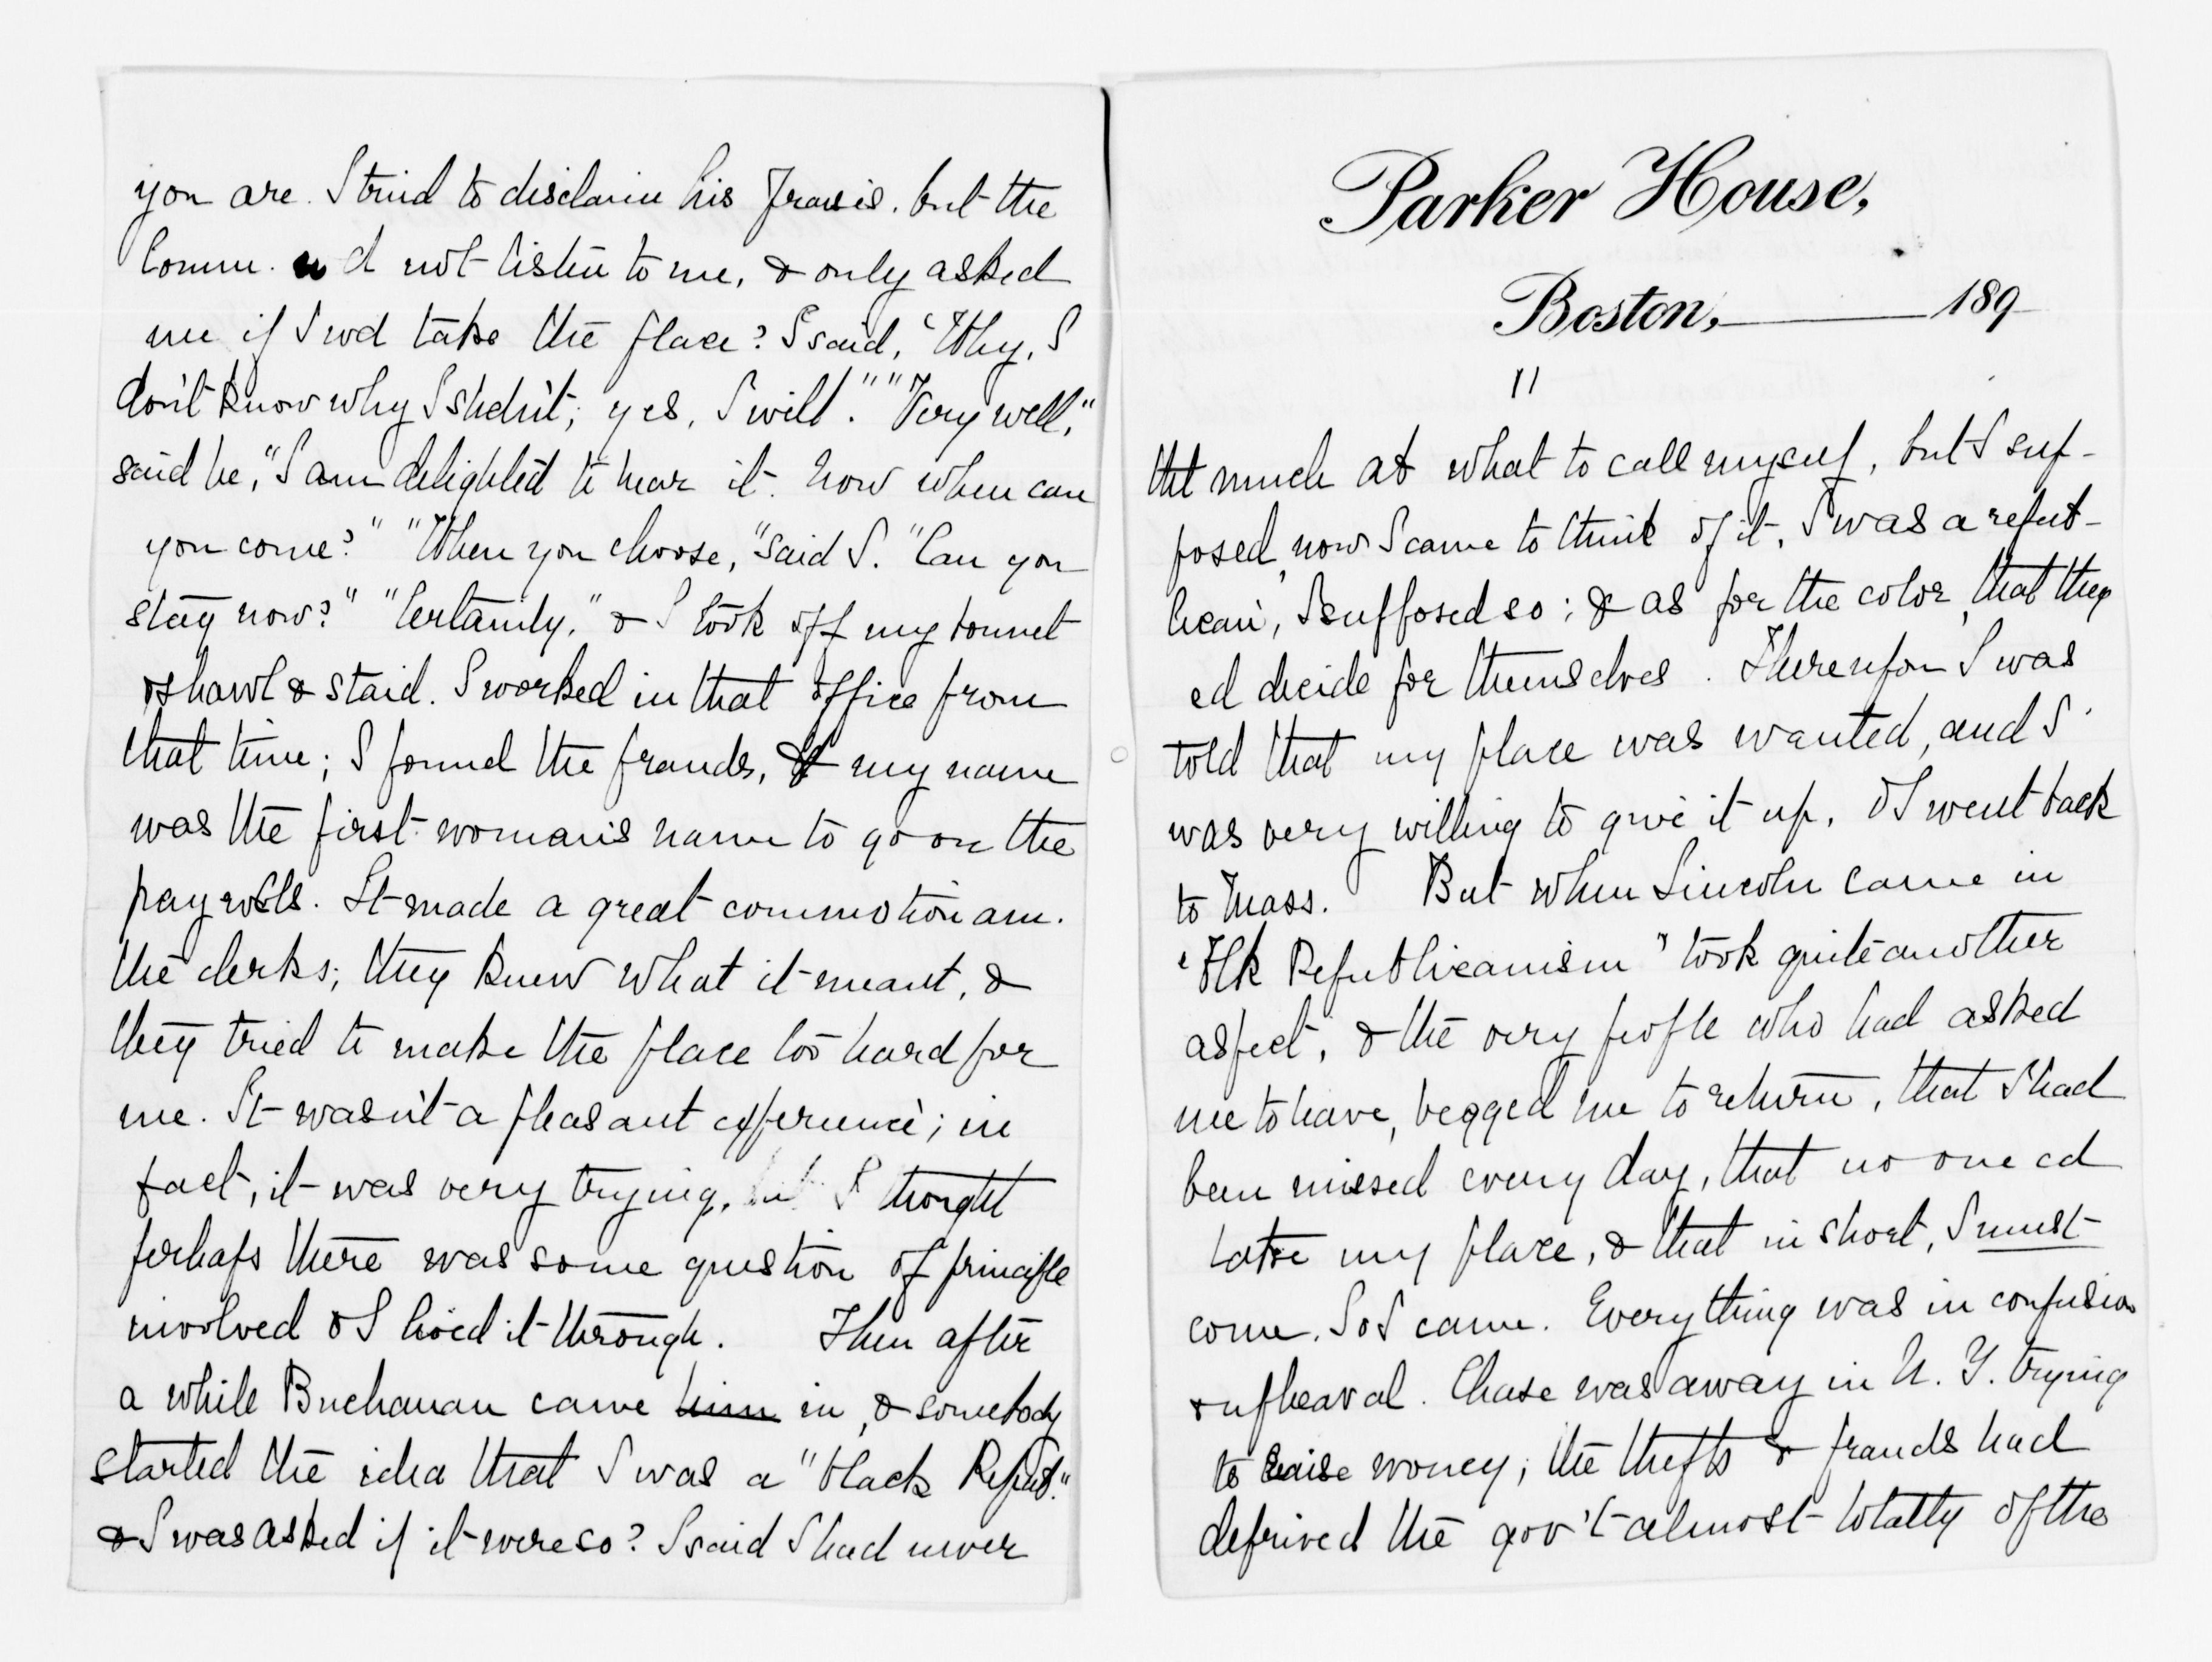 you are. I tried to disclaim his praises, but the
Comm. wd not listen to me, & only asked
me if I wd take the place? I said, "Why, I
don't know why I shdn't; yes, I will." "Very well,"
said he, "I am delighted to hear it. Now when can
you come?" "When you choose," said I. "Can you
stay now?" "Certainly," & I took off my bonnet
& shawl & staid. I worked in that office from
that time; I found the frauds, & my name
was the first woman's name to go on the
pay rolls. It made a great commotion am.
the clerks; they knew what it meant, &
they tried to make the place too hard for
me. It wasn't a pleasant experience; in
fact, it was very trying, but I thought
perhaps there was some question of principle
involved & I lived it through. Then after
a while Buchanan came him in, & somebody
started the idea that I was a "black Repub."
& I was asked if it were so? I said I had never
Parker House,
Boston, 189
11
tht much abt what to call myself, but I sup-
posed, now I came to think of it, I was a repub-
lican, I supposed so; & as for the color, that they
cd decide for themselves. Thereupon I was
told that my place was wanted, and I
was very willing to give it up. & I went back
to Mass. But when Lincoln came in
"Blk Republicanism" took quite another
aspect, & the very people who had asked
me to leave, begged me to return, that I had
been missed every day, that no one cd
take my place, & that in short, I must
come. So I came. Everything was in confusion
& upheaval. Chase was away in N. Y. trying
to raise money; the thefts & frauds had
deprived the gov't almost totally of the